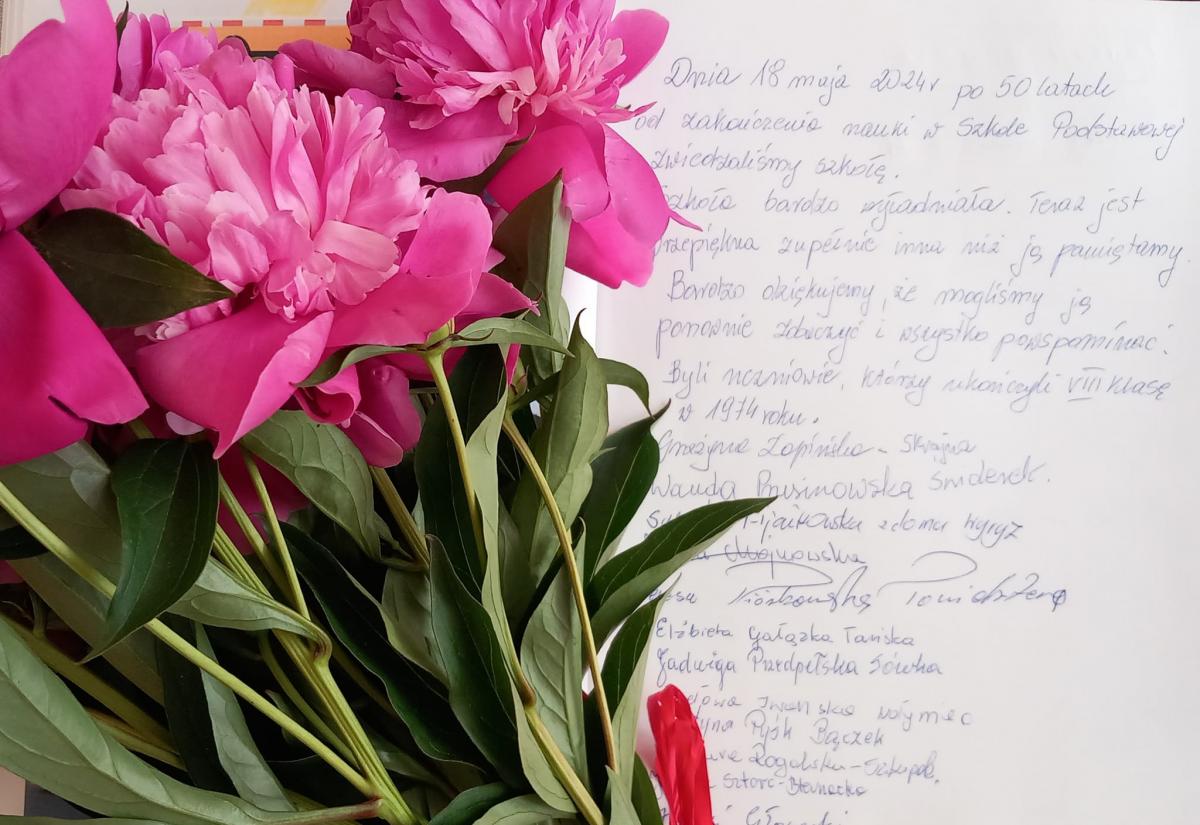 Dnia 18 maja 2024r po 50 latach
od zakończenia nauki w Szkole Podstawowej
zwiedzaliśmy szkołę.
Szkoła bardzo wyładniała. Teraz jest
przepiękna zupełnie inna niż ją pamiętamy.
Bardzo dziękujemy, że mogliśmy ją
ponownie zobaczyć i wszystko powspominać.
Byli uczniowie, którzy ukończyli VIII klasę
w 1974 roku.
Grażyna - Skrajna
Wanda Brusinowska Smderek.
z domu Kyryz
Elżbieta Gałązka Tańska
Jadwiga Przedpełska Sówka
Iwańska Wołymiec
Pyśk Bączek
Rogalska-Szkupek.